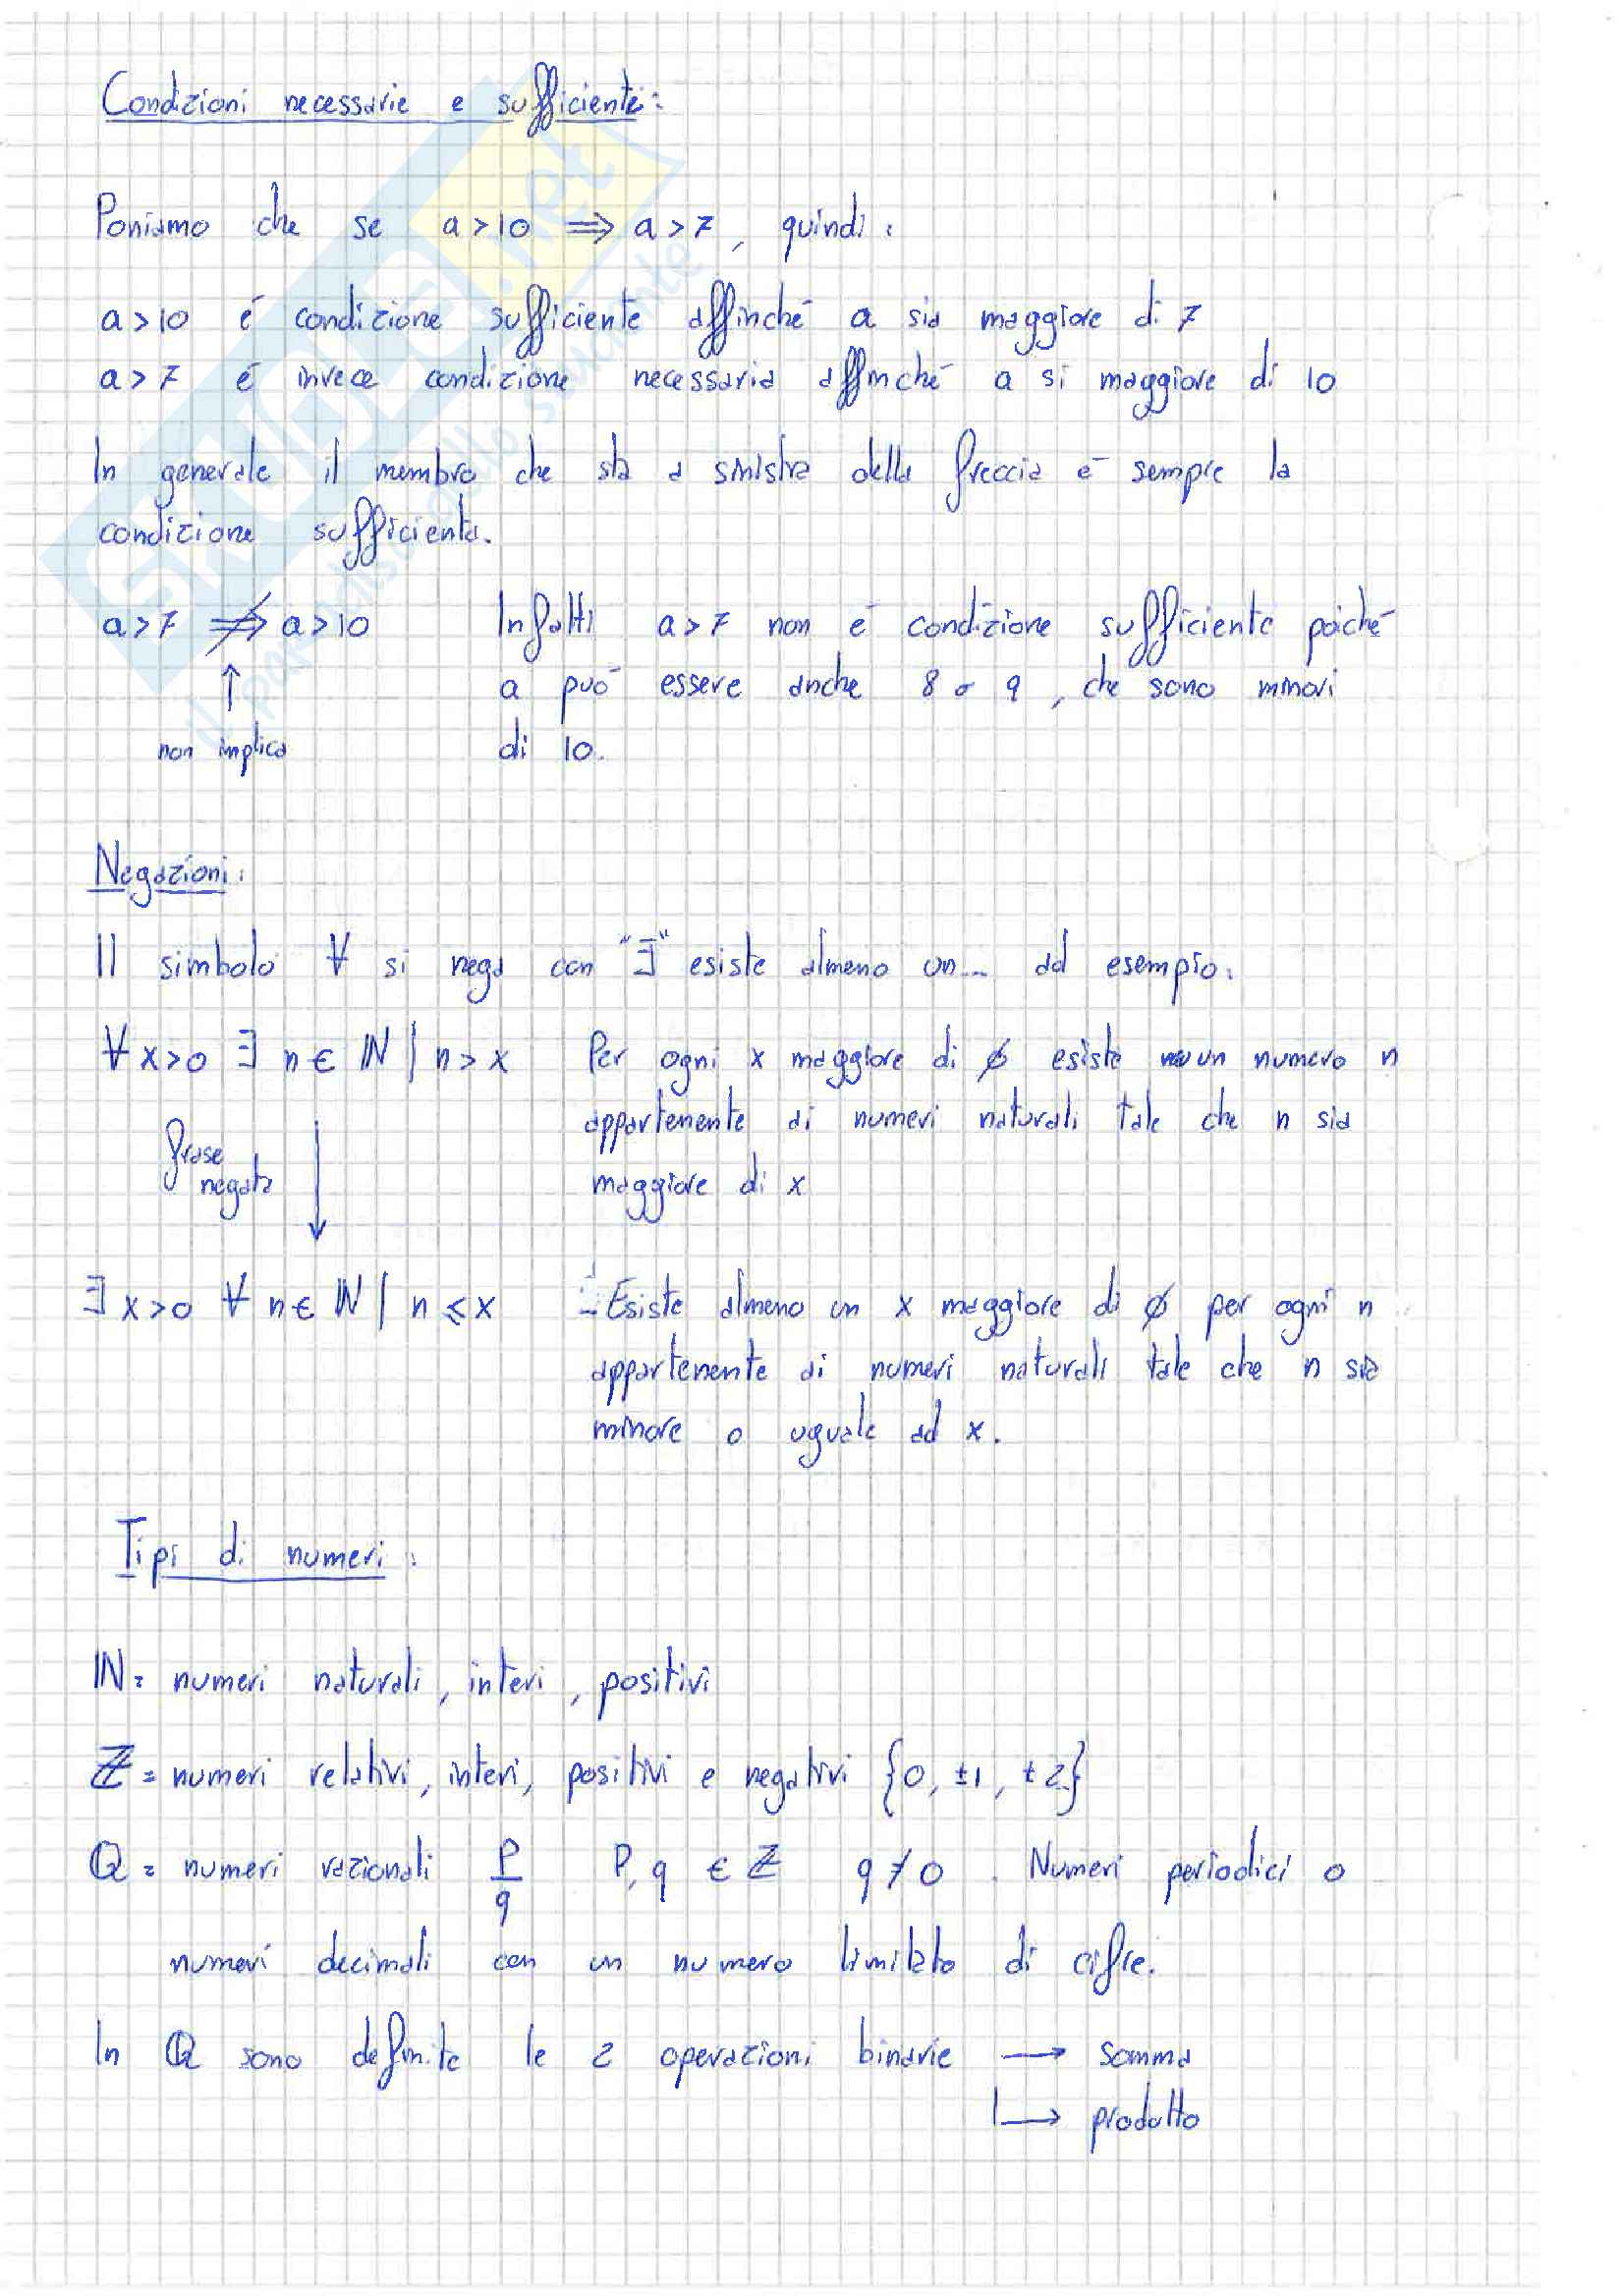 Condizioni necessarie e sufficiente:
Poniamo che se a>10 ⇒ a>7, quindi:
a>10 é condizione sufficiente affinché a sia maggiore di 7
a>7 é invece condizione necessaria affinché a si maggiore di 10
In generale il membro che sta a sinistra della freccia é sempre la
condizione sufficiente.
a>7 ⇏ a>10 Infatti a>7 non é condizione sufficiente poiché
↑ a può essere anche 8 o 9, che sono minori
non implica di 10.
Negazioni:
Il simbolo ∀ si nega con "∃" esiste almeno un... ad esempio:
∀ x>0 ∃ n∈ ℕ | n>x Per ogni x maggiore di ∅ esiste un numero n
appartenente ai numeri naturali tale che n sia
frase
negata ↓ maggiore di x
∃ x>0 ∀ n∈ ℕ | n≤x Esiste almeno un x maggiore di ∅ per ogni n
appartenente ai numeri naturali tale che n sia
minore o uguale ad x.
Tipi di numeri:
ℕ= numeri naturali, interi, positivi
ℤ= numeri relativi, interi, positivi e negativi {0, ±1, ±2}
ℚ= numeri razionali p/q p,q ∈ ℤ q≠0. Numeri periodici o
numeri decimali con un numero limitato di cifre.
In ℚ sono definite le 2 operazioni binarie → somma
↳ prodotto
SKUOLA.net
il paradiso dello studente